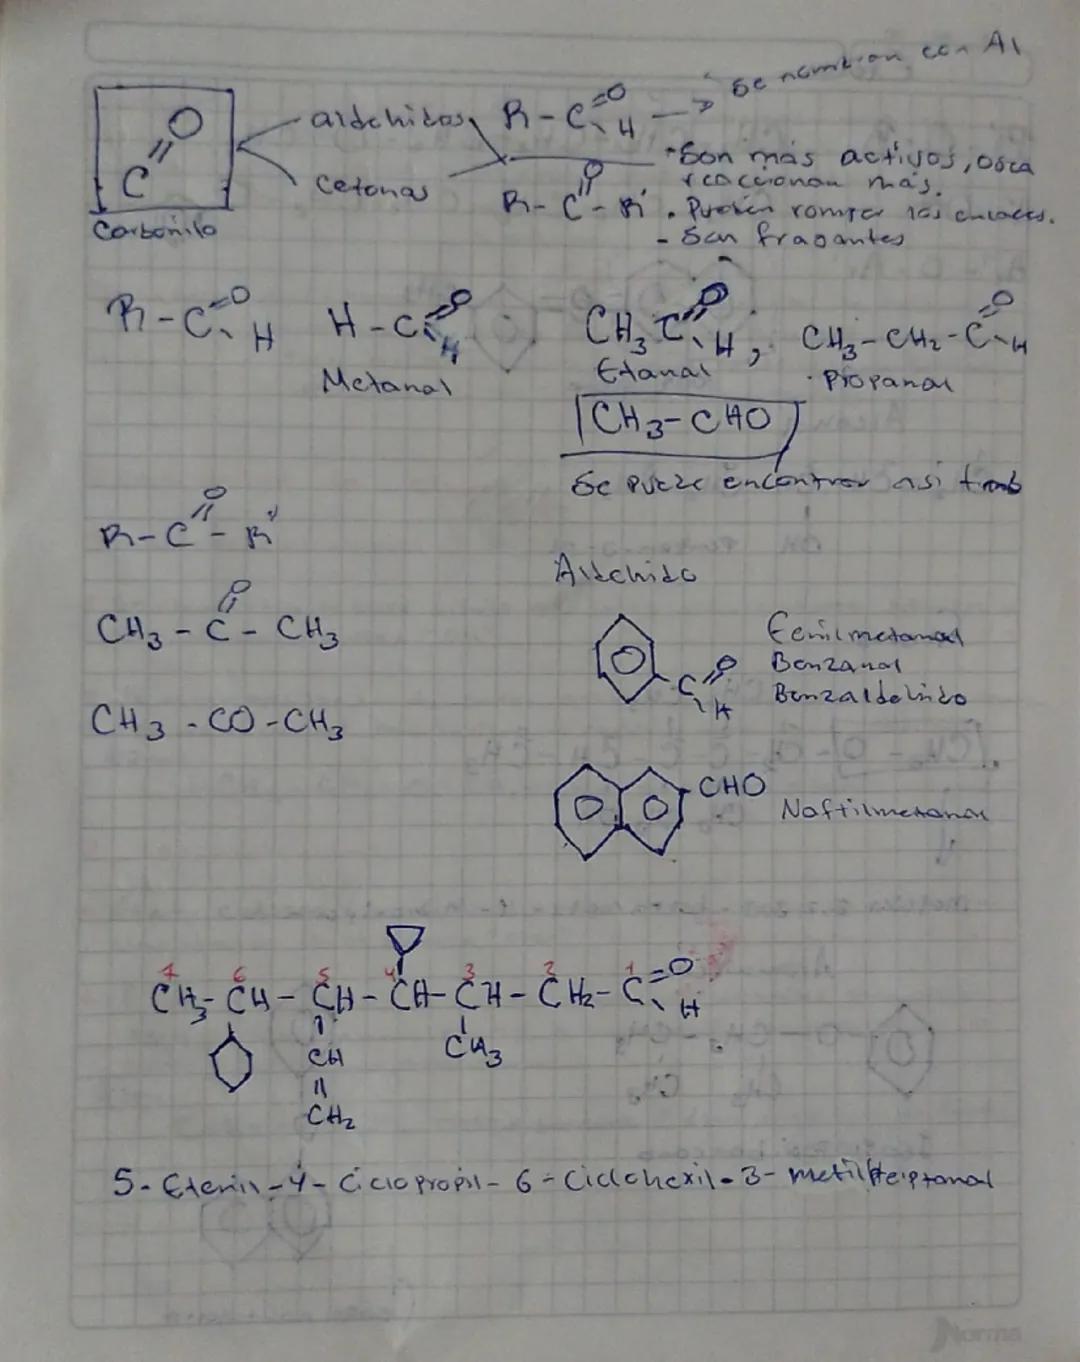 Se nombran con Al
C=O
Carbonilo
aldehidos R-C=O H →
cetonas R-C=O-R'
•Son más activos, osea
reaccionan más.
• Pueden romper los enlaces.
- Son fragantes
R-C=O H
H-C=O H
Metanal
CH3 C=O H,
Etanal
CH3-CH2-C=O H
Propanal
CH3-CHO
Se puede encontrar asi tmb
R-C=O-R'
CH3-C=O-CH3
CH3-CO-CH3
Aldehido
C=O H
Fenilmetanal
Benzanal
Benzaldehido
CHO
Naftilmetanal
7 6 5 4 3 2 1
CH3-CH-CH-CH-CH-CH2-C=O H
CH
CH3
CH2
5-Etenil-4-Ciclopropil-6-Ciclohexil-3-metilheptanal
Norma